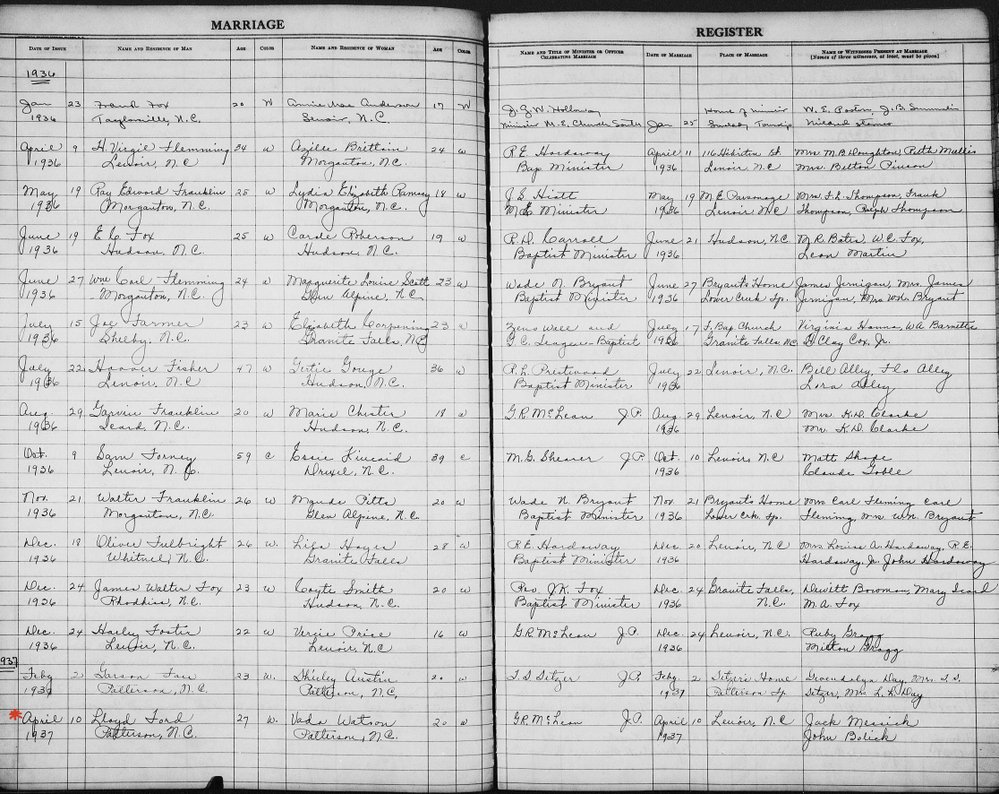 MARRIAGE
DATE OF ISSUE NAME AND RESIDENCE OF MAN AGE COLOR NAME AND RESIDENCE OF WOMAN AGE COLOR
1936
Jan 23 Frand Fox 20 W Annie Mae Anderson 17 W
1936 Taylorsville, N.C. Lenoir, N.C.
April 9 H. Virgil Flemming 34 W Azilee Brittain 24 W
1936 Lenoir, N.C. Morganton, N.C.
May 19 Ray Edward Franklin 25 W Lydia Elizabeth Ramsey 18 W
1936 Morganton, N.C. Morganton, N.C.
June 19 E.C. Fox 25 W Carole Roberson 19 W
1936 Hudson, N.C. Hudson, N.C.
June 27 Wm Carl Flemming 24 W Marguerite Louise Scott 23 W
1936 Morganton, N.C. Glen Alpine, N.C.
July 15 Joe Farmer 23 W Elizabeth Corpening 23 W
1936 Shelby, N.C. Granite Falls, N.C.
July 22 Hoover Fisher 47 W Gertie Gouge 36 W
1936 Lenoir, N.C. Hudson, N.C.
Aug. 29 Garvin Franklin 20 W Marie Chester 18 W
1936 Icard, N.C. Hudson, N.C.
Oct. 9 Sam Forney 59 C Essie Kincaid 39 C
1936 Lenoir, N.C. Drexel, N.C.
Nov. 21 Walter Franklin 26 W Maude Pitts 20 W
1936 Morganton, N.C. Glen Alpine, N.C.
Dec. 18 Oliver Fulbright 26 W. Hayes 28 W
1936 Whitnel, N.C. Granite Falls
Dec. 24 James Walter Fox 23 W Coyte Smith 20 W
1936 Rhodhiss, N.C. Hudson, N.C.
Dec. 24 Harley Foster 22 W Vergie Price 16 W
1936 Lenoir, N.C. Lenoir, N.C.
1937
Feby 2 Carson Fau 23 W. Shirley Austin 20 W
1937 Patterson, N.C. Patterson, N.C.
April 10 Lloyd Ford 27 W. Vada Watson 20 W
1937 Patterson, N.C. Patterson, N.C.
REGISTER
NAME AND TITLE OF MINISTER OR OFFICER CELEBRATING MARRIAGE DATE OF MARRIAGE PLACE OF MARRIAGE NAME OF WITNESSES PRESENT AT MARRIAGE
[Names of three witnesses, at least, must be given]
J.G.W. Holloway Home of minister W.E. Poston, J.B.
Minister M.E. Church South Jan 25 Township
R.E. Hardaway April 11 116 Hibriten St. Mrs. M.B. Doughton, Ruth Mullis
Bap Minister 1936 Lenoir, N.C. Mrs. Belton Pinson
J.S. Hiatt May 19 M.E. Parsonage Mrs. F.L. Thompson, Frank
M.E. Minister 1936 Lenoir N.C. Thompson, Ralph Thompson
R.D. Carroll June 21 Hudson, N.C. M.R. Bates, W.C. Fox,
Baptist Minister 1936 Leon Martin
Wade N. Bryant June 27 Bryant's Home James Jernigan, Mrs. James
Baptist Minister 1936 Lower Creek Tp. Jernigan, Mrs. W.N. Bryant
Zeno Wall and July 17 F. Bap. Church Virginia Hanna, W.A. Barnette
G.C. Teague - Baptist 1936 Granite Falls, N.C. Clay Cox, Jr.
R.L. Prestwood July 22 Lenoir, N.C. Bill Alley, Flo Alley
Baptist Minister 1936 Lora Alley
G.R. McLean J.P. Aug 29 Lenoir, N.C. Mrs. K.D. Clarke
1936 Mr. K.D. Clarke
M.G. Shearer J.P. Oct. 10 Lenoir, N.C. Matt Shope
1936 Claude Goble
Wade N. Bryant Nov 21 Bryant's Home Mrs Carl Fleming Carl
Baptist Minister 1936 Lower Crk. Tp. Fleming, Mrs W.N. Bryant
R.E. Hardaway Dec. 20 Lenoir, N.C. Mrs. Louise A. Hardaway, R.E.
Baptist Minister 1936 Hardaway, Jr. John Hardaway
Rev J.K. Fox Dec. 24 Granite Falls, Dewitt Bowman, Mary Icard
Baptist Minister 1936 N.C. M.A. Fox
G.R. McLean J.P. Dec. 24 Lenoir, N.C. Ruby Gragg
1936 Milton Gragg
T.S. Setzer J.P. Feby. 2 Setzer's Home Gwendolyn Day, Mrs. T.S.
1937 Patterson Tp. Setzer, Mrs. L.R. Day
G.R. McLean J.P. April 10 Lenoir, N.C. Jack Messick
1937 John Bolick